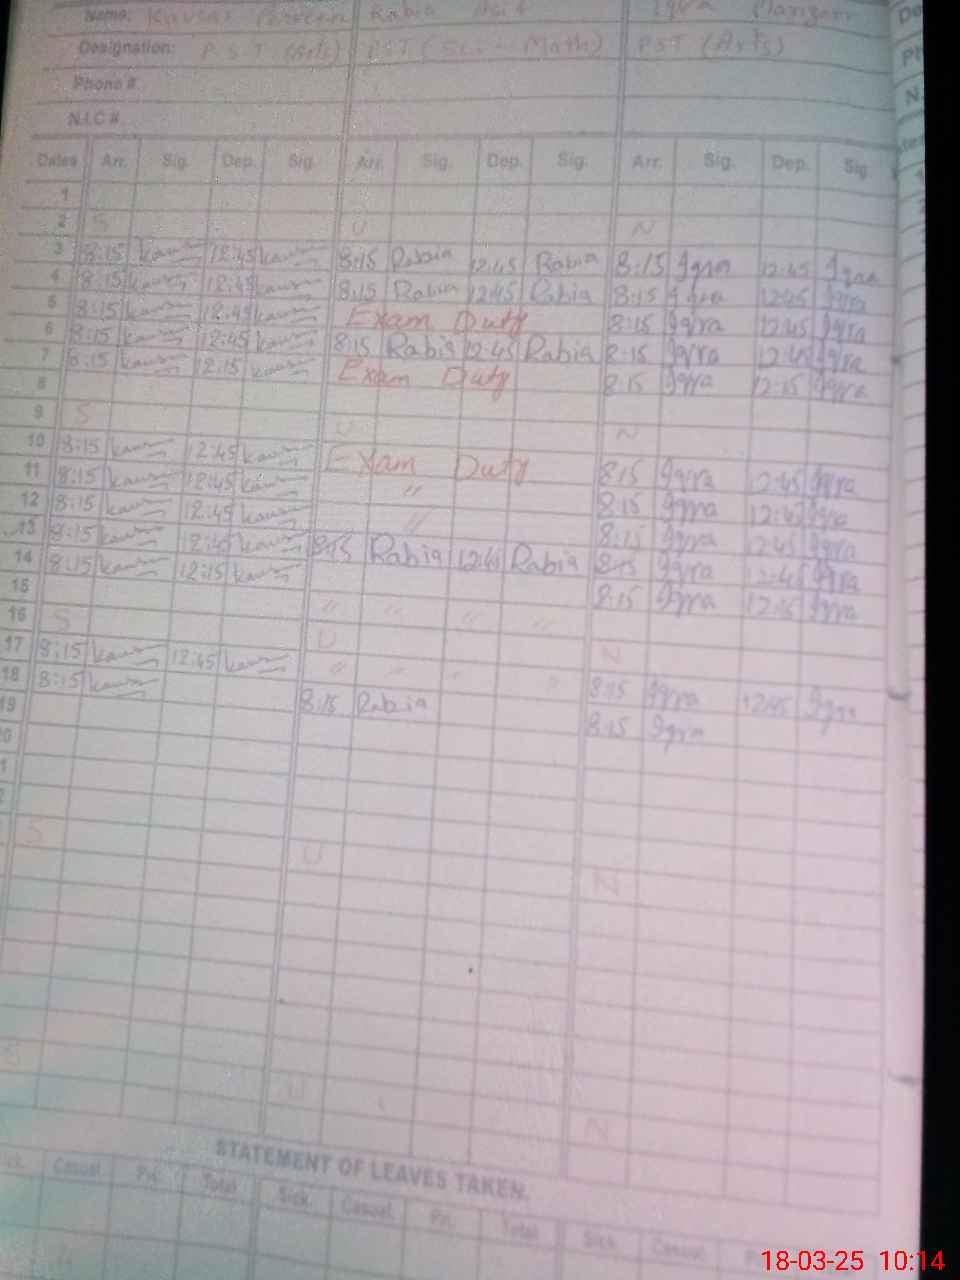 Name: Kausar Parveen Rabia Asif Iqra Maryam
Designation: PST (Arts) PST (Sci-Math) PST (Arts)
Phone #
N.I.C #
Dates Arr. Sig. Dep. Sig. Arr. Sig. Dep. Sig. Arr. Sig. Dep. Sig.
1
2 S U N
3 8:15 kausar 12:45 kausar 8:15 Rabia 12:45 Rabia 8:15 Iqra 12:45 Iqra
4 8:15 kausar 12:45 kausar 8:15 Rabia 12:45 Rabia 8:15 Iqra 12:45 Iqra
5 8:15 kausar 12:45 kausar Exam Duty 8:15 Iqra 12:45 Iqra
6 8:15 kausar 12:45 kausar 8:15 Rabia 12:45 Rabia 8:15 Iqra 12:45 Iqra
7 8:15 kausar 12:15 kausar Exam Duty 8:15 Iqra 12:15 Iqra
8
9 S U N
10 8:15 kausar 12:45 kausar Exam Duty 8:15 Iqra 12:45 Iqra
11 8:15 kausar 12:45 kausar " 8:15 Iqra 12:45 Iqra
12 8:15 kausar 12:45 kausar " 8:15 Iqra 12:45 Iqra
13 8:15 kausar 12:45 kausar 8:15 Rabia 12:45 Rabia 8:15 Iqra 12:45 Iqra
14 8:15 kausar 12:15 kausar " " " " 8:15 Iqra 12:15 Iqra
15
16 S U N
17 8:15 kausar 12:45 kausar " " " " 8:15 Iqra 12:45 Iqra
18 8:15 kausar 8:15 Rabia 8:15 Iqra
19
S U N
S U N
STATEMENT OF LEAVES TAKEN.
Casual Pri. Total Sick. Casual Pri. Total Sick. Casual
18-03-25 10:14